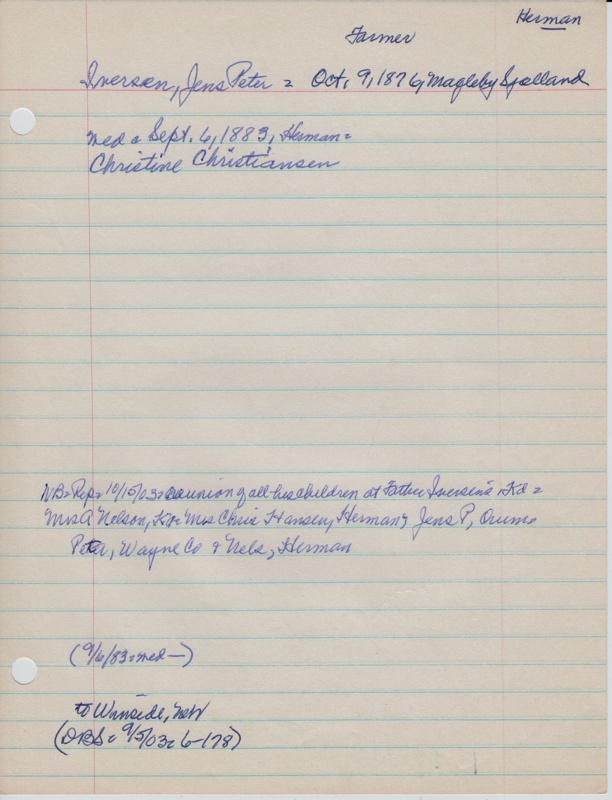 Herman
Farmer
Iversen, Jens Peter = Oct. 9, 1876, Magleby Sjolland
med = Sept. 6, 1883, Herman =
Christine Christiansen
NB = Rep = 10/15/03 = reunion of all his children at Father Iversen's Kd =
Mrs A Nelson, Ko = Mrs Chris Hansen, Herman, Jens P, Orum =
Peter, Wayne Co & Nels, Herman
(9/6/83 = med —)
to Winside, Neb
(DBS = 9/5/03 = 6-178)